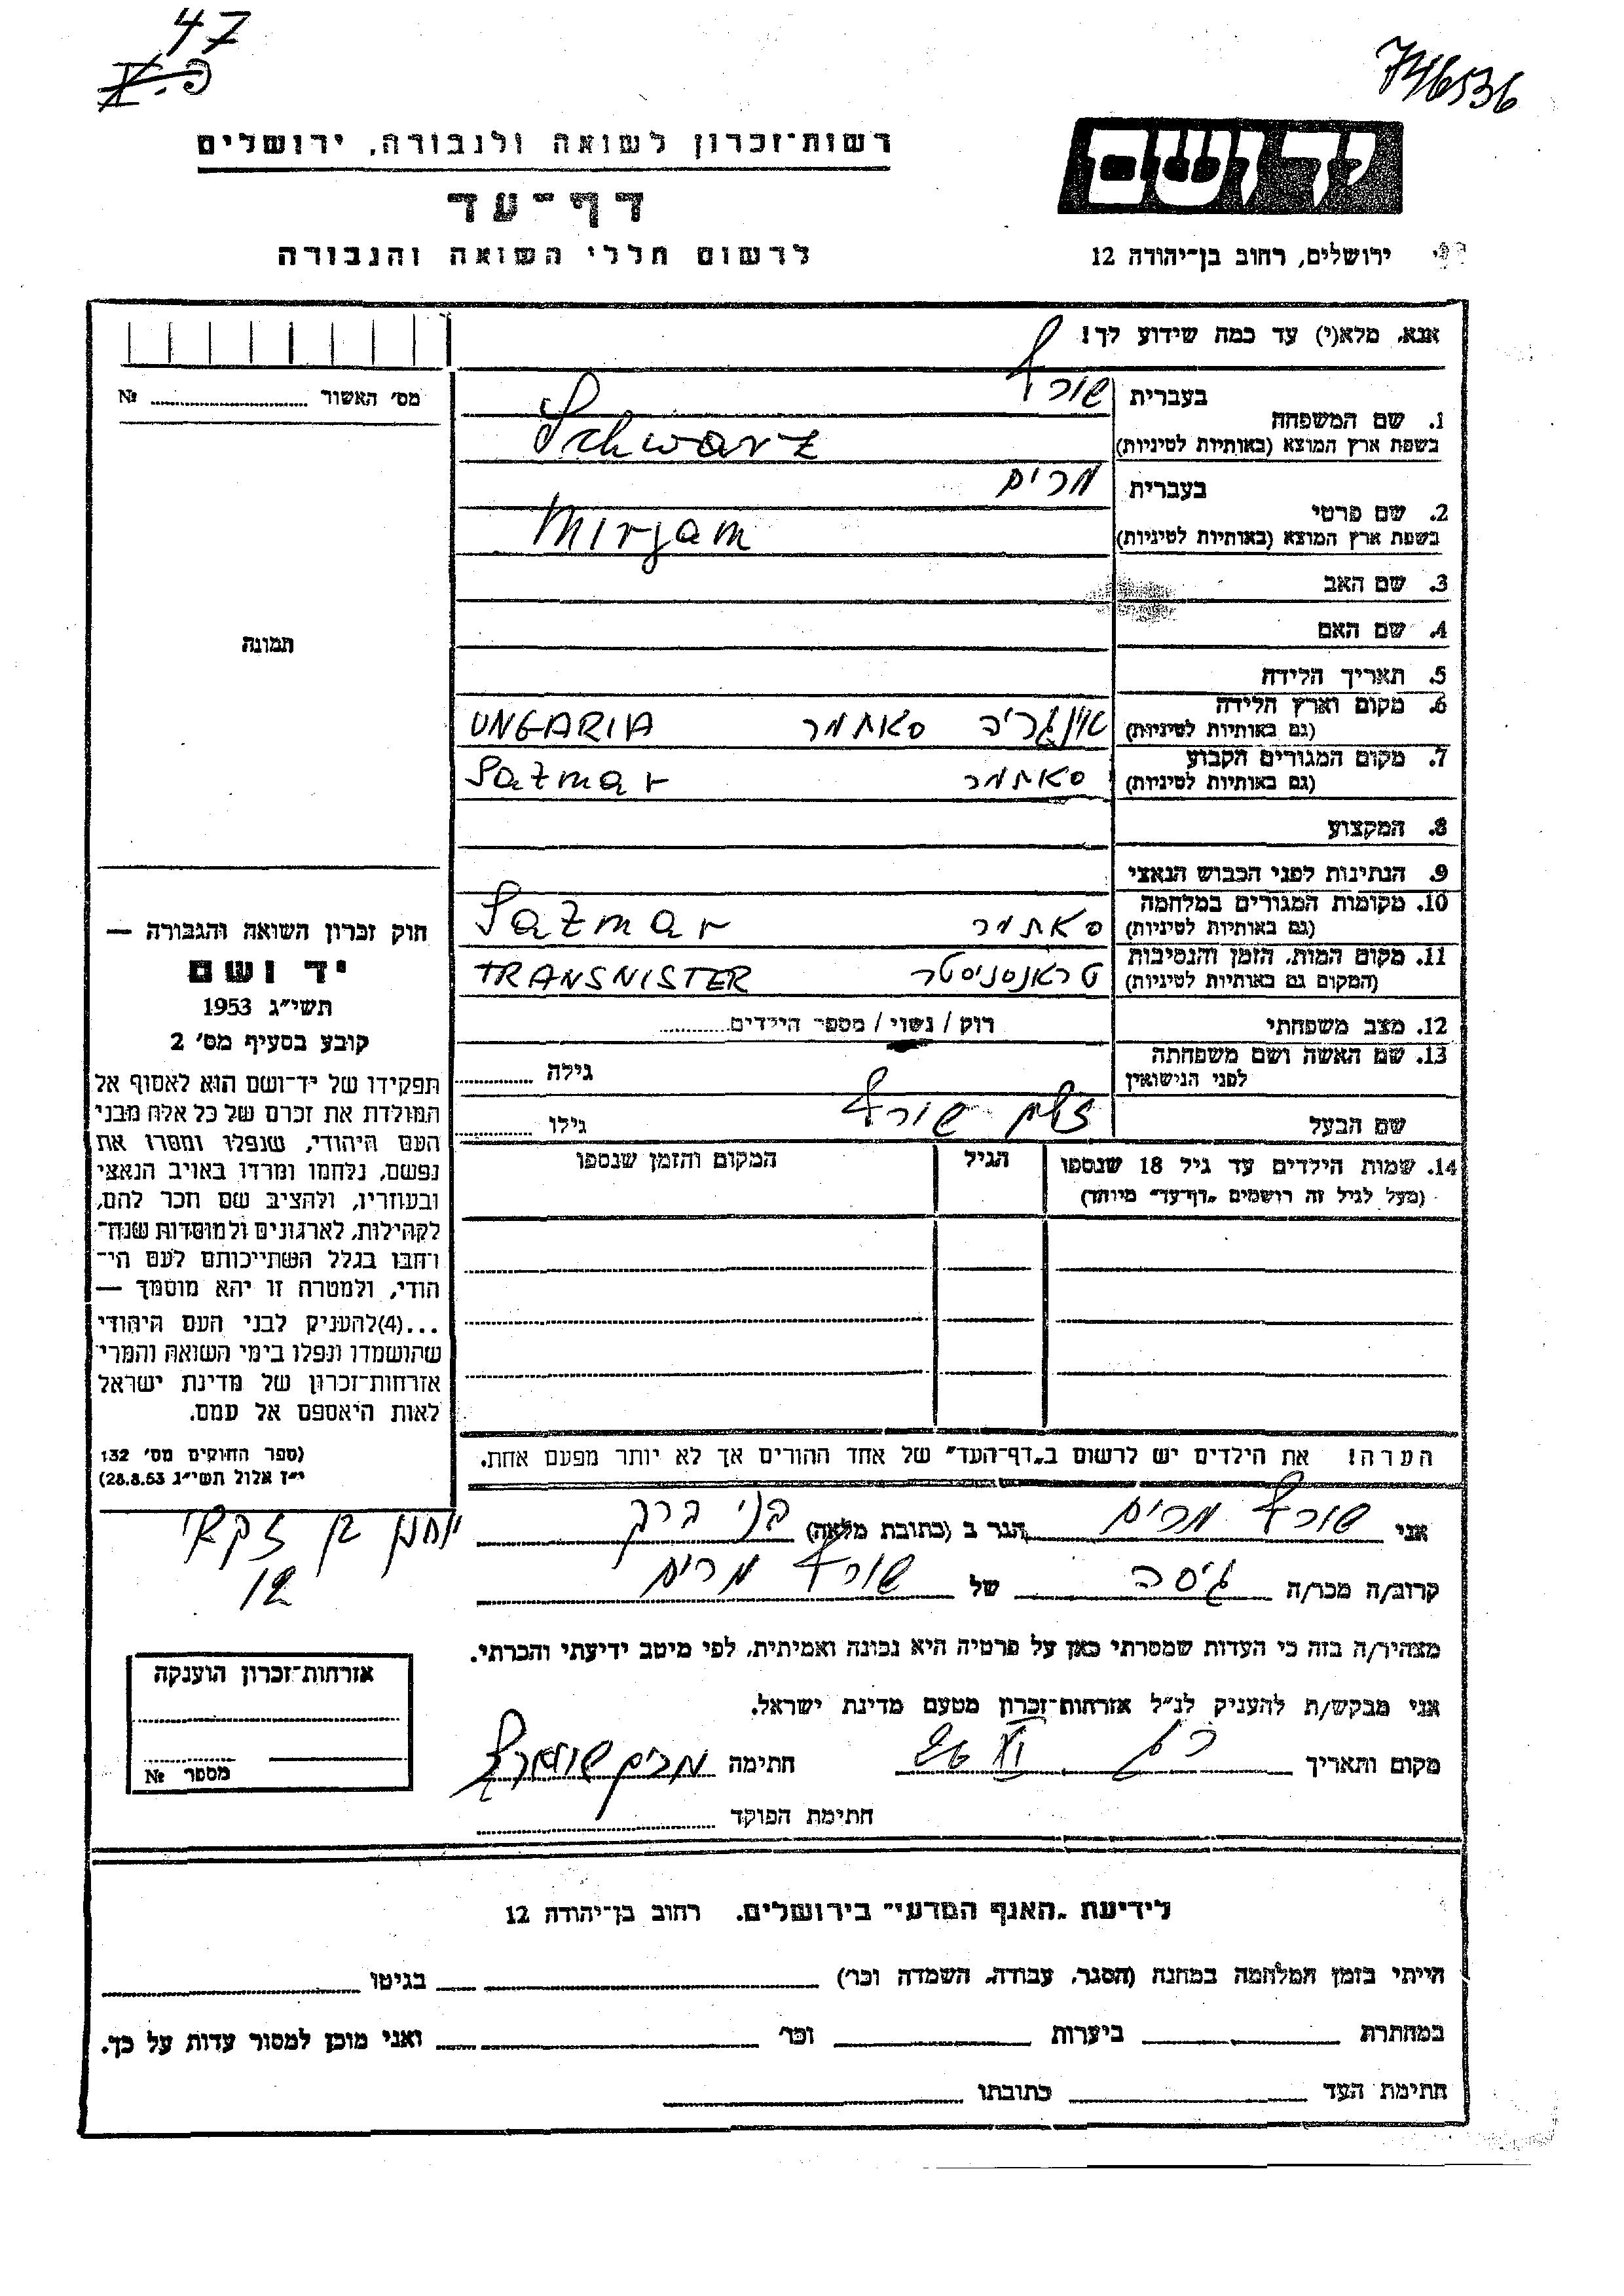 47
746536
רשות־זכרון לשואה ולגבורה, ירושלים
דף־עד
לרשום חללי השואה והגבורה
יד ושם
ירושלים, רחוב בן־יהודה 12
אנא, מלא(י) עד כמה שידוע לך!
מס' האשור ........ №
1. שם המשפחה
בעברית שורץ
בשפת ארץ המוצא (באותיות לטיניות) Schwarz
2. שם פרטי
בעברית מרים
בשפת ארץ המוצא (באותיות לטיניות) Mirjam
3. שם האב
4. שם האם
תמונה
5. תאריך הלידה
6. מקום וארץ הלידה
(גם באותיות לטיניות) אונגריה סאתמר UNGARIA
7. מקום המגורים הקבוע
(גם באותיות לטיניות) סאתמר Sazmar
8. המקצוע
9. הנתינות לפני הכבוש הנאצי
10. מקומות המגורים במלחמה
(גם באותיות לטיניות) סאתמר Sazmar
11. מקום המות, הזמן והנסיבות
(המקום גם באותיות לטיניות) טראנסניסטר TRANSNISTER
12. מצב משפחתי רוק / נשוי / מספר הילדים........
13. שם האשה ושם משפחתה
לפני הנישואין גילה ........
שם הבעל שורץ גילו ........
14. שמות הילדים עד גיל 18 שנספו הגיל המקום והזמן שנספו
(מעל לגיל זה רושמים "דף־עד" מיוחד)
הערה! את הילדים יש לרשום ב"דף־העד" של אחד ההורים אך לא יותר מפעם אחת.
חוק זכרון השואה והגבורה —
יד ושם
תשי"ג 1953
קובע בסעיף מס' 2
תפקידו של יד־ושם הוא לאסוף אל
המולדת את זכרם של כל אלה מבני
העם היהודי, שנפלו ומסרו את
נפשם, נלחמו ומרדו באויב הנאצי
ובעוזריו, ולהציב שם וזכר להם,
לקהילות, לארגונים ולמוסדות שנח־
רבו בגלל השתייכותם לעם הי־
הודי, ולמטרה זו יהא מוסמך —
...(4)להעניק לבני העם היהודי
שהושמדו ונפלו בימי השואה והמרי
אזרחות־זכרון של מדינת ישראל
לאות היאספם אל עמם.
(ספר החוקים מס' 132
י"ז אלול תשי"ג 28.8.53)
אני שורץ מרים הגר ב (כתובת מלאה) בני ברק
יוחנן בן זכאי
12
קרוב/ה מכר/ה גיסה של שורץ מרים
מצהיר/ה בזה כי העדות שמסרתי כאן על פרטיה היא נכונה ואמיתית, לפי מיטב ידיעתי והכרתי.
אני מבקש/ת להעניק לנ"ל אזרחות־זכרון מטעם מדינת ישראל.
מקום ותאריך חתימה מרים שווארץ
חתימת הפוקד
אזרחות־זכרון הוענקה
מספר №
לידיעת "האגף המדעי" בירושלים, רחוב בן־יהודה 12
הייתי בזמן המלחמה במחנה (הסגר, עבודה, השמדה וכו') בגיטו
במחתרת ביערות וכו' ואני מוכן למסור עדות על כך.
חתימת העד כתובתו